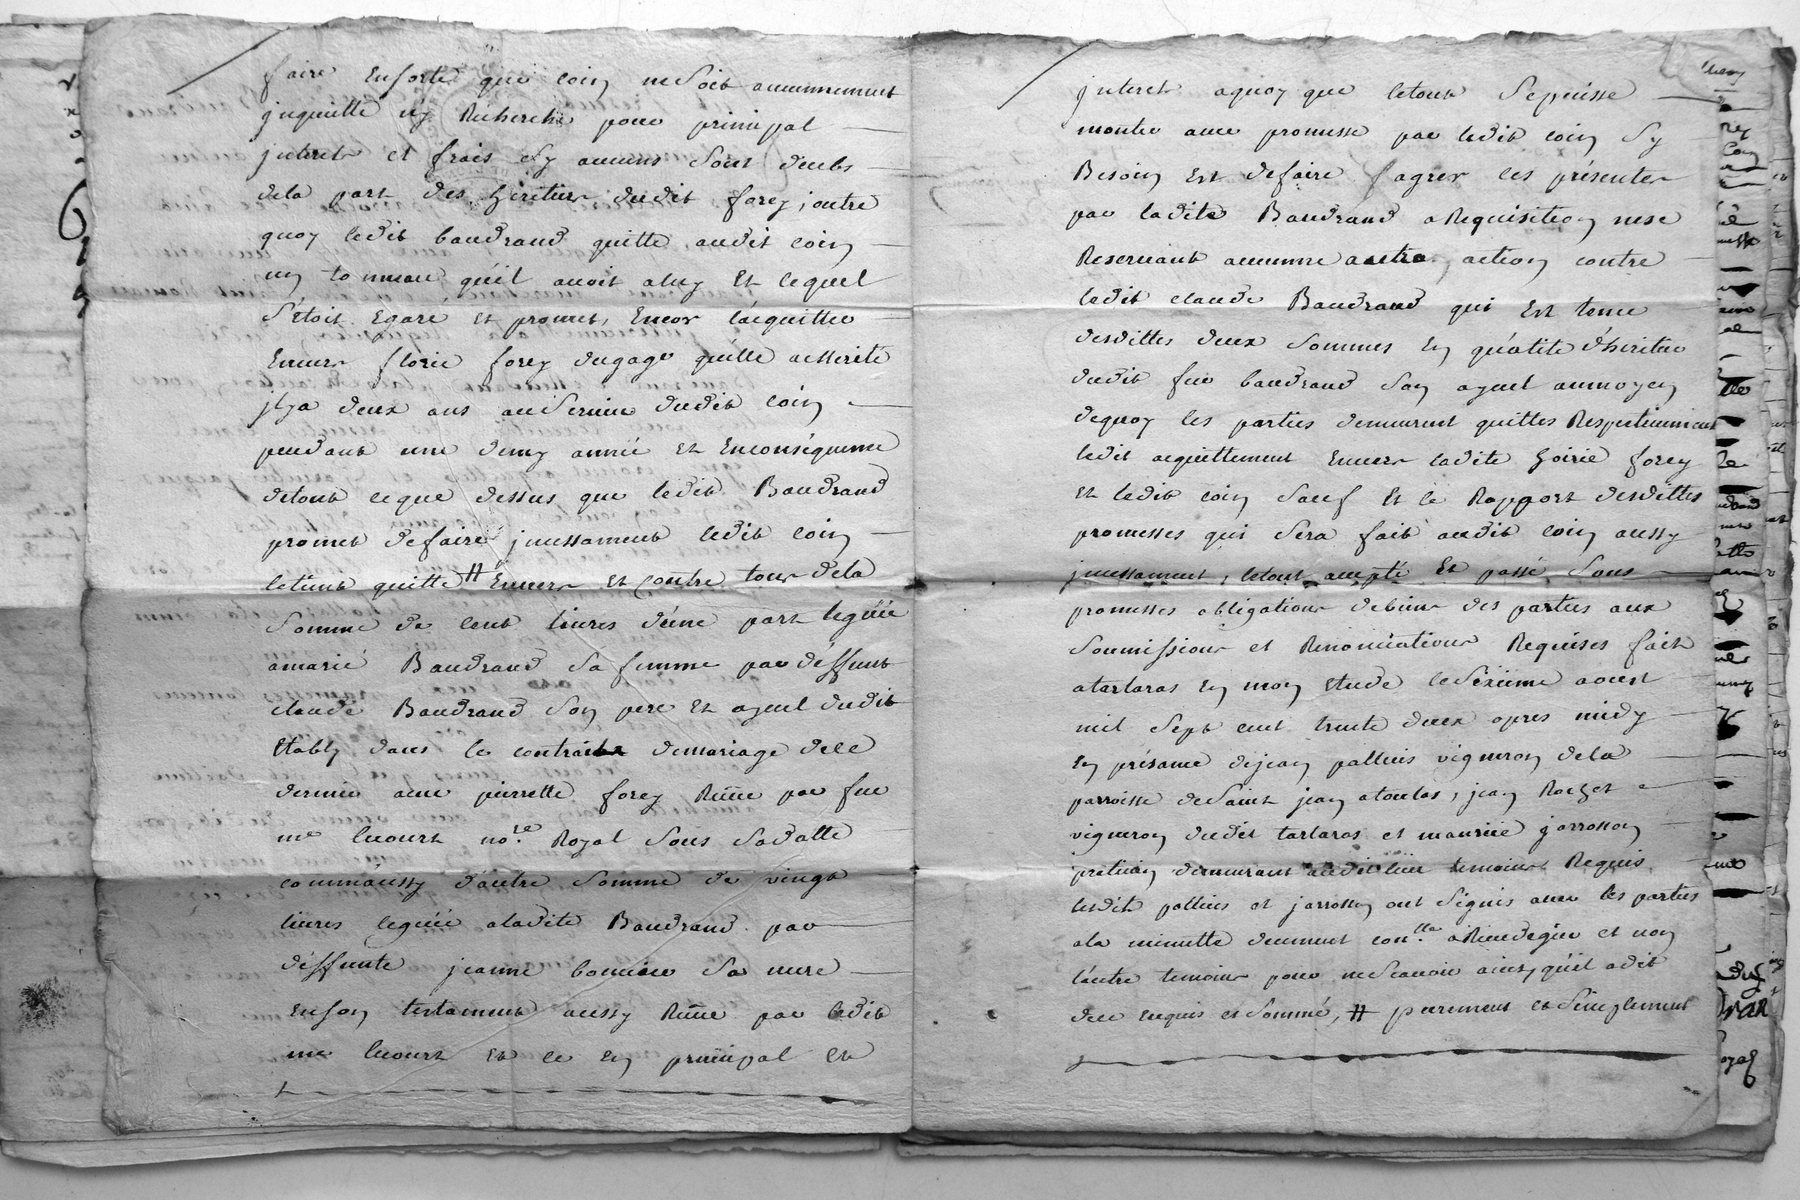 faire Ensorte que coin nesoit aucunnement
jnquiette ny Recherché pour principal
jnterets et frais sy aucuns sont deubs
dela part des heritiers dudit forey, outre
quoy ledit baudrand quitte audit coin
un tonneau quil avoit aluy Et lequel
s'étoit Egaré et promet, Encor lacquitter
Envers florie forey dugage quelle amerité
jlya deux ans auservice dudit coin
pendant une demy année et Enconséquence
detout ceque dessus que ledit Baudrand
promet defaire jncessament ledit coin
letient quitte # Envers et contre tous dela
somme de cent livres d'une part leguée
amarie Baudrand sa femme par déffunt
claude Baudrand son pere et ayeul dudit
Etably dans le contract demariage dece
dernier avec pierrette forey Reçue par feu
me lucourt nore Royal sous sadatte
commeaussy d'autre somme de vingt
livres leguée aladite Baudrand par
déffunte jeanne sa mere
Enson testament aussy Reçue par ledit
me lucourt Et ce En principal et
jnterets aquoy que letout sepuisse
monter avec promesse par ledit coin sy
Besoin Est defaire fagrer ces présentes
par ladite Baudrand aRequisition nese
Reservant aucunne autre action contre
ledit claude Baudrand qui Est tenu
desdittes deux sommes En quatité d'héritier
dudit feu baudrand son ayeul aumoyen
dequoy les parties demeurent quittes Respectivement
ledit acquittement Envers ladite hoirie forey
Et ledit coin sauf Et le Rapport desdittes
promesses qui sera fait audit coin aussy
jncessament, letout accepté Et passé sous
promesses obligations debiens des parties aux
soumissions et Renonciations Requises fait
atartaras En mon Etude lesixiéme aoust
mil sept cent trente deux apres midy
En présance dejean pattieis vigneron dela
parroisse desaint jean atoulas, jean Rochet
vigneron dudit tartaras et maurice jarrosson
praticien demeurant audit lieu temoins Requis
lesdits pattieis et jarrosson ont signés avec les parties
ala minutte duement conlle aRivedegier et non
l'autre temoins pour nescavoir ainsy quil adit
dece enquis et sommé, # purement et simplement